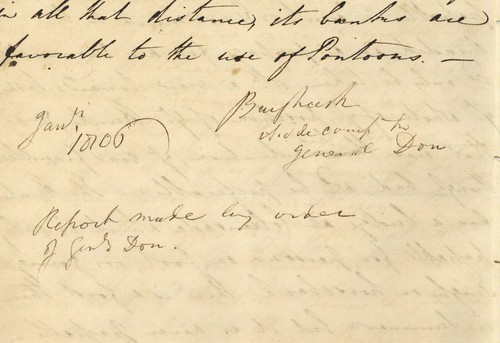 in all that distance, its banks are
favorable to the use of Pontoons. —
Jany.
1806
Burghersh
Aide camp to
General Don
Report made by order
of Genl Don.